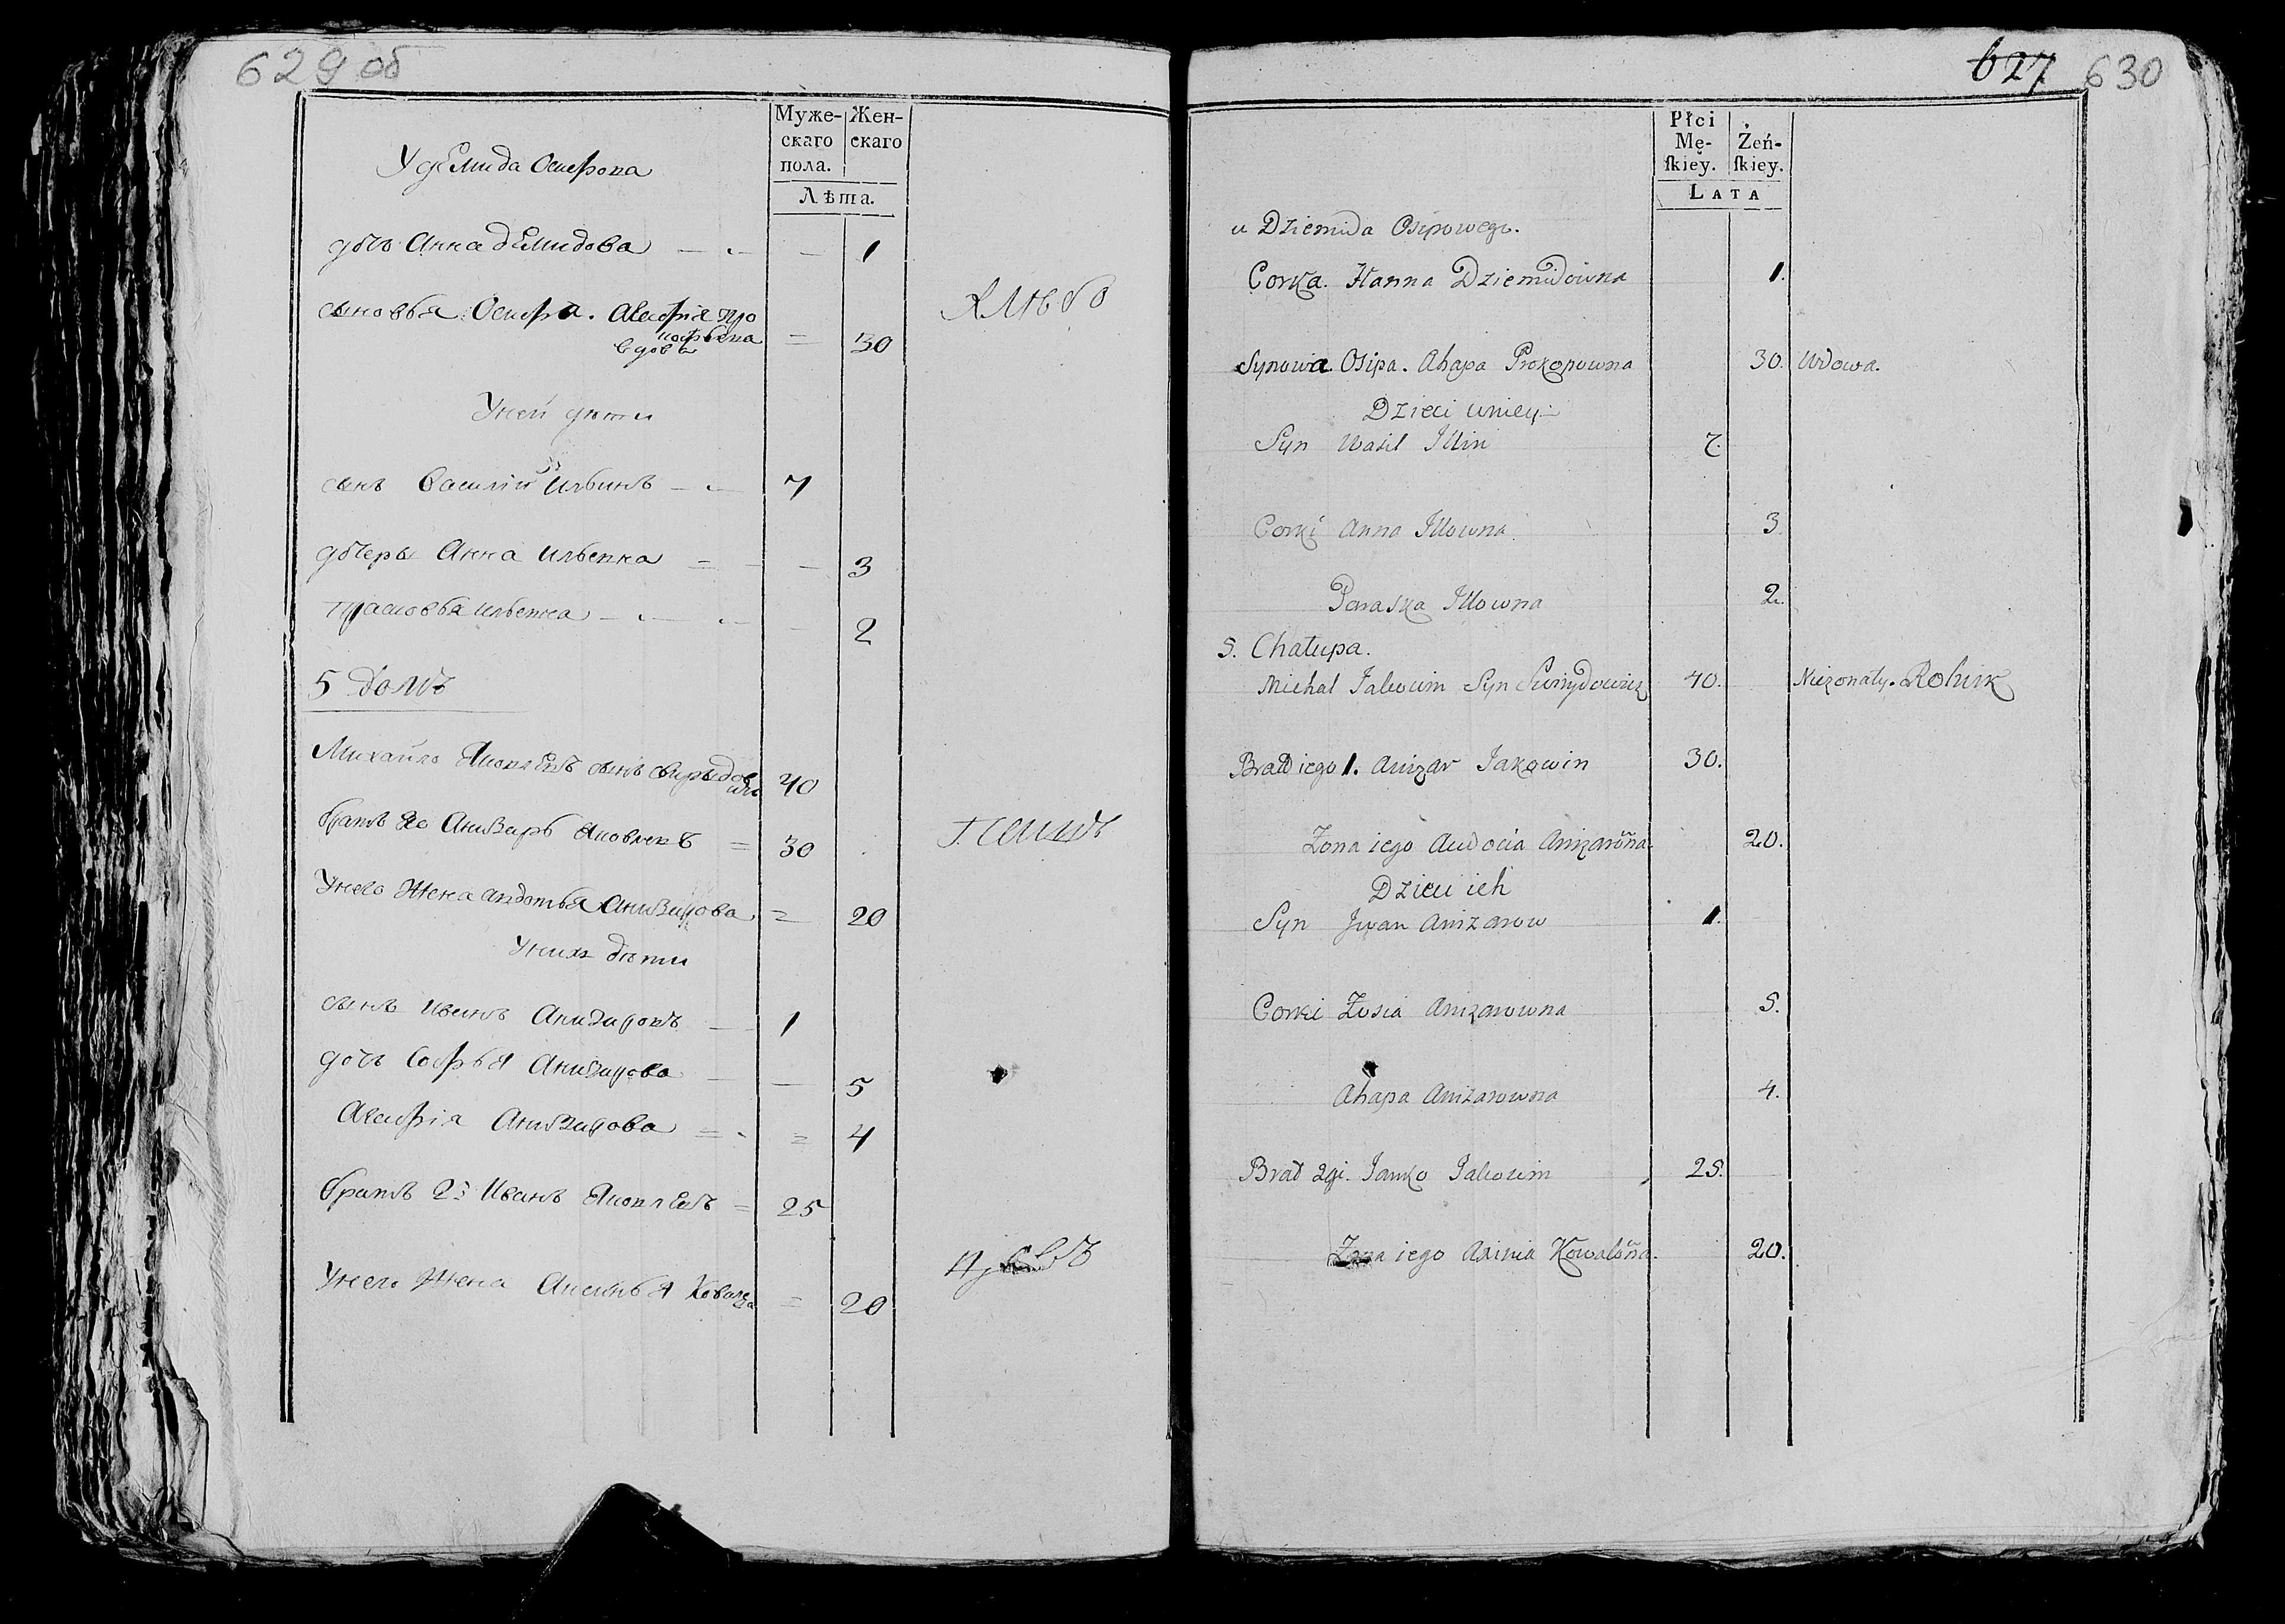 629 об
Муже-
скаго
пола.
Жен-
скаго
Лѣта.
У демида Осипова
дочь Анна демидова 1
сыновья Осипа. Агафія про
кофьева
вдова 30
У ней дѣти
сынъ Василій Ильинъ 7
дочеры Анна Ильвна 3
Прасковья 2
5 домъ
Михайло сынъ 40
братъ его Анизаръ 30
У него жена Авдотья Анизарова 20
У нихъ дѣти
сынъ Иванъ Анизаровъ 1
дочь Софья Анизарова 5
Агафія Анизарова 4
братъ 2й Иванъ 25
У него жена Аксинья 20
627 630
Płci
Mę-
ſkiey.
Żeń-
ſkiey.
LATA
u Dziemida Osipowego.
Corka. Hanna Dziemidowna 1.
Synowa. Osipa. Ahapa Prokopowna 30. Wdowa.
Dzieci u niey
Syn Wasil Illin 7.
Corki Anna Illowna 3
Paraska Illowna 2.
5. Chałupa.
Michał Jakowin Syn 40. Nieżonaty. Rolnik
Brat iego 1. Anizar Jakowin 30.
Żona iego Audocia 20.
Dzieci ich
Syn Jwan Anizarow 1.
Corki Zosia Anizarowna 5.
Ahapa Anizarowna 4.
Brat 2gi. Janko Jakowin 25.
Żona iego Axinia 20.